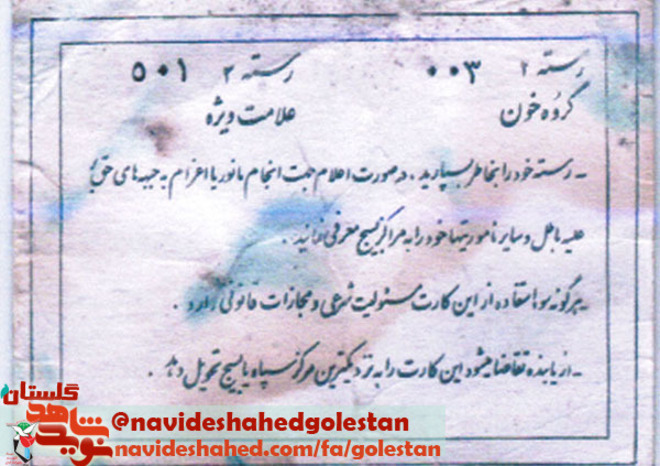 رسته ۲ ۰۰۳ رسته ۲ ۵۰۱
گروه خون علامت ویژه
- رسته خود را بخاطر بسپارید . در صورت اعلام جهت انجام مانور یا اعزام به جبهه های حق
علیه باطل و سایر مأموریتها خود را به مراکز بسیج معرفی نمائید .
هرگونه سوء استفاده از این کارت مسئولیت شرعی و مجازات قانونی دارد .
- از یابنده تقاضا میشود این کارت را به نزدیکترین مرکز سپاه یا بسیج تحویل دهد .
نوید شاهد گلستان
@navideshahedgolestan
navideshahed.com/fa/golestan